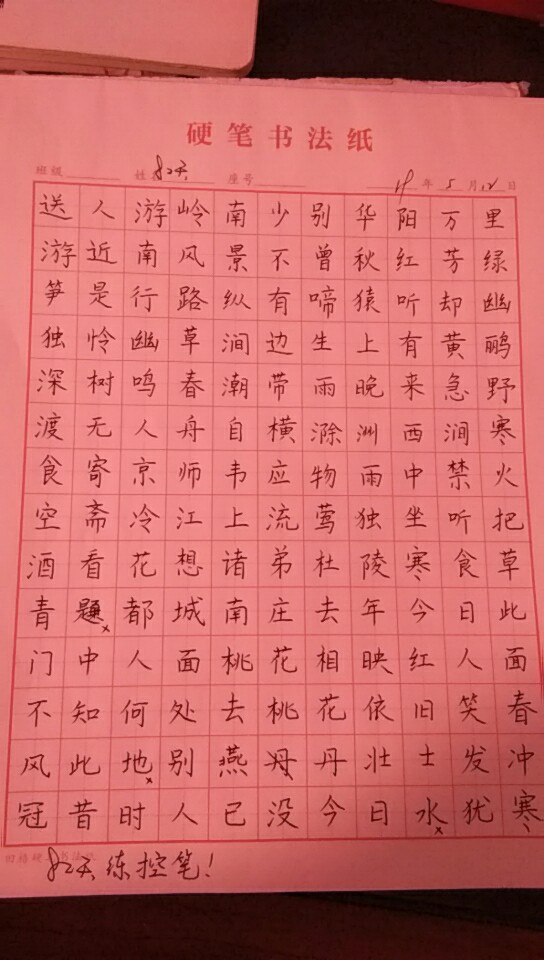 硬笔书法纸
班级 姓名 82天 座号 19年5月12日
送人游岭南少别华阳万里
游近南风景不曾秋红芳绿
笋是行路纵有啼猿听却幽
独怜幽草涧边生上有黄鹂
深树鸣春潮带雨晚来急野
渡无人舟自横滁洲西涧寒
食寄京师韦应物雨中禁火
空斋冷江上流莺独坐听把
酒看花想诸弟杜陵寒食草
青题都城南庄去年今日此
门中人面桃花相映红人面
不知何处去桃花依旧笑春
风此地别燕丹壮士发冲
冠昔时人已没今日水犹寒
82天练控笔!